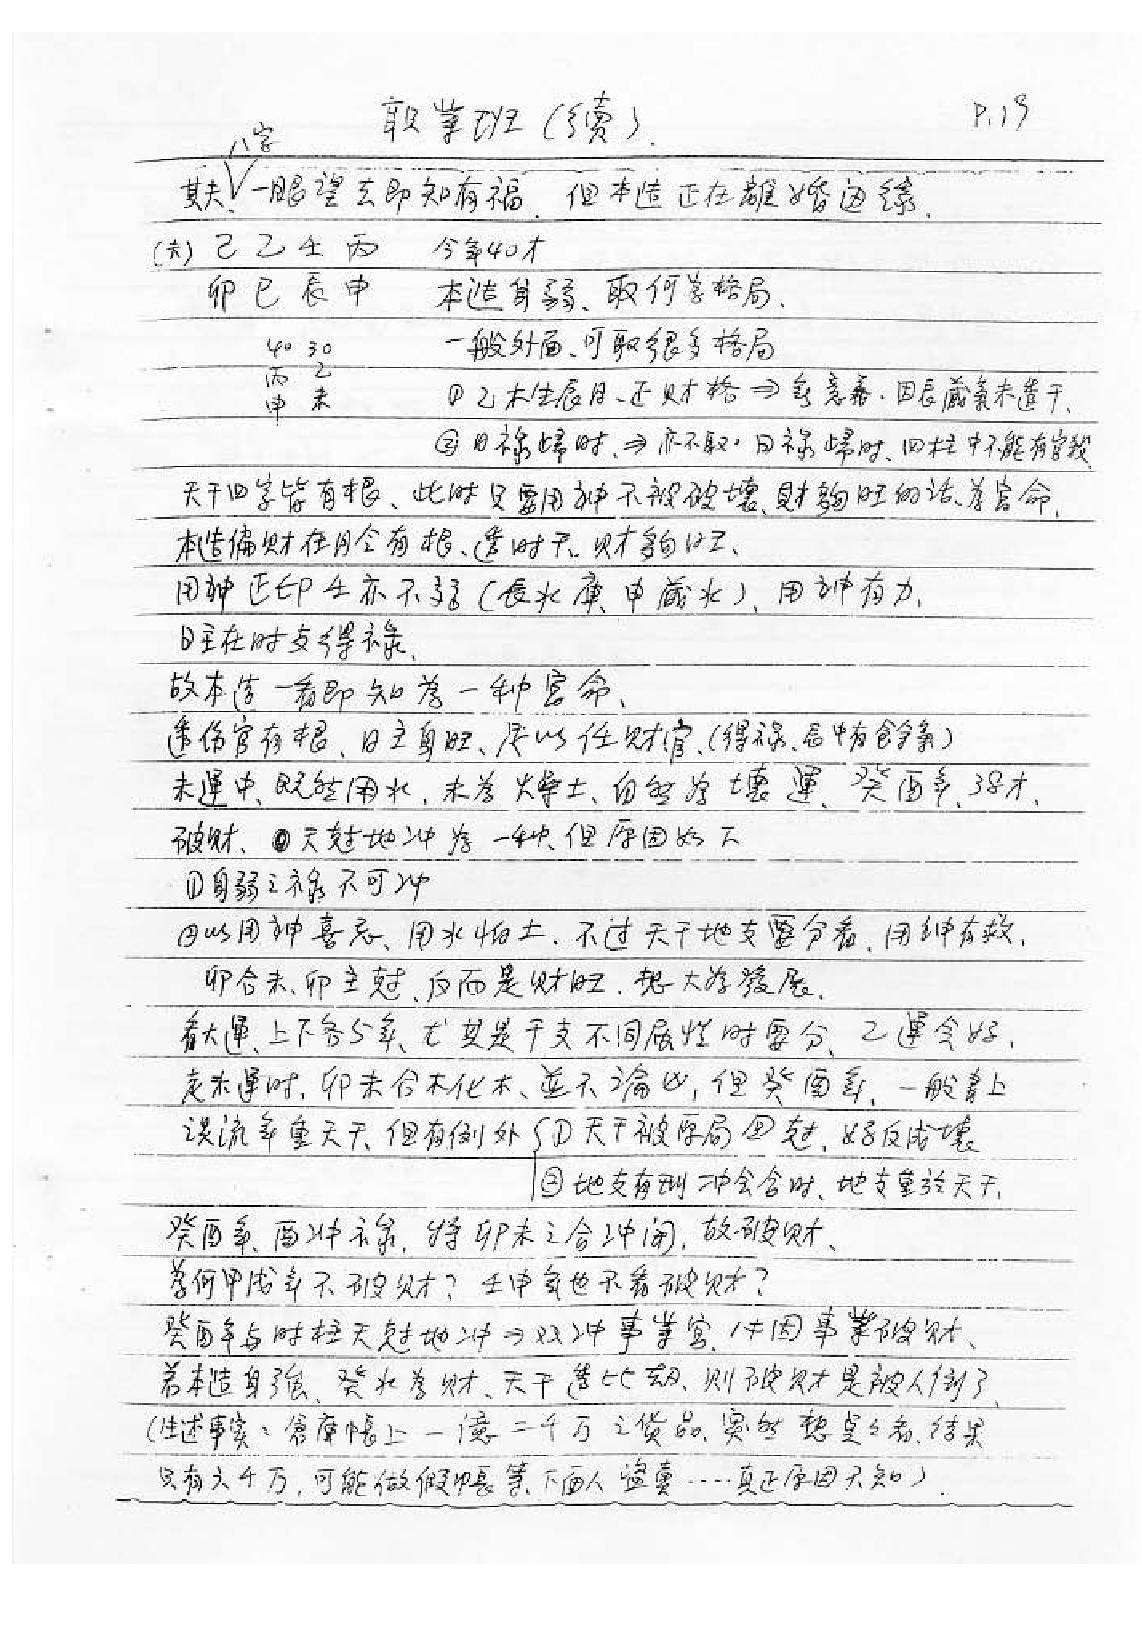 職業班(續). P.19
八字
其夫,一眼望去即知有福.但本造正在離婚邊緣.
(六) 己乙壬丙 今年40才
卯巳辰申 本造身弱、取何等格局.
40 30 一般外面、可取很多格局
丙 乙
申 未 ①乙木生辰月、正財格⇒無意義.因辰藏氣未透干.
②日祿歸時、⇒亦不取.日祿歸時、四柱中不能有官殺
天干四字皆有根、此時只要用神不被破壞,財夠旺的話、為富命.
本造偏財在月令有根、透時干、財夠旺、
用神正印壬亦不弱(長水庚申藏水)、用神有力.
日主在时支得祿.
故本造一看即知為一种富命、
透伤官有根、日主身旺、足以任财官.(得祿、辰中有余氣)
未運中、既然用水,未為火燥土、自然為壞運、癸酉年、38才、
破财、天尅地冲為一种、但原因如下
①身弱之祿不可冲
②以用神喜忌、用水怕土.不过天干地支要分看、用神有救.
卯合未、卯主尅、反而是财旺.想大為發展、
看大運、上下各5年、尤其是干支不同屬性时要分、乙運会好.
走未運时,卯未合木化木、並不論凶,但癸酉年,一般書上
談流年重天干、但有例外 ①天干被原局尅,好反成壞
②地支有刑冲会合时、地支重於天干.
癸酉年、酉冲祿,將卯未之合冲開,故破财、
為何甲戌年不破财?壬申年也不看破财?
癸酉年与时柱天尅地冲⇒双冲事業宫,*因事業破财、
若本造身強、癸水為财、天干透比劫、則破财是被人倒了
(生述事实:倉庫帳上一億二千万之货品,突然想点々看、结果
只有六千万,可能做假帳等、下面人盜賣……真正原因不知).